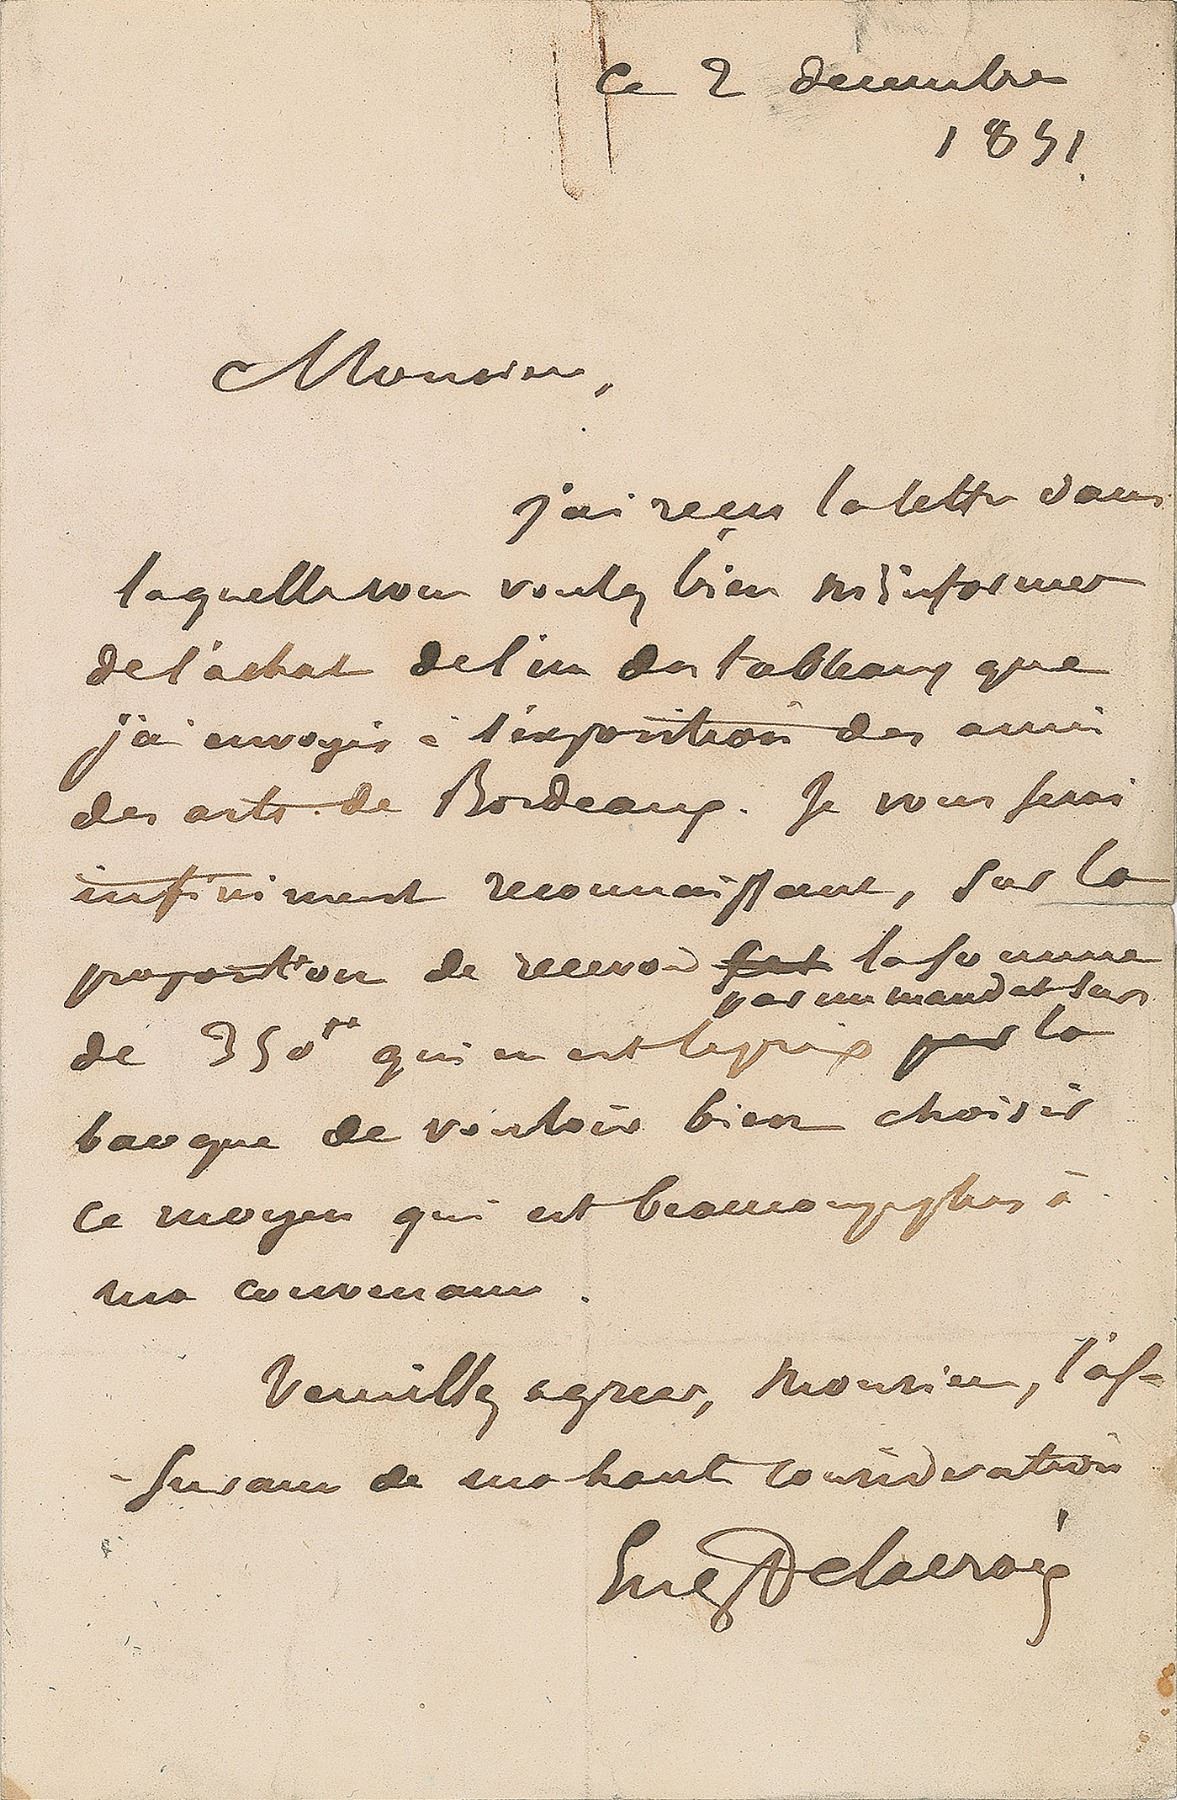 Ce 2 decembre
1851.
Monsieur,
j'ai reçu la lettre dans
laquelle vous voulez bien m'informer
de l'achat de l'un des tableaux que
j'ai envoyés à l'exposition des amis
des arts de Bordeaux. Je vous serai
infiniment reconnaissant, sur la
proposition de recevoir la somme
par un mandat sur
de 350 fr qui en est le prix par la
banque de vouloir bien choisir
ce moyen qui est beaucoup plus à
ma convenance.
Veuillez agreer, Monsieur, l'as-
-surance de ma haute consideration
Eug Delacroix